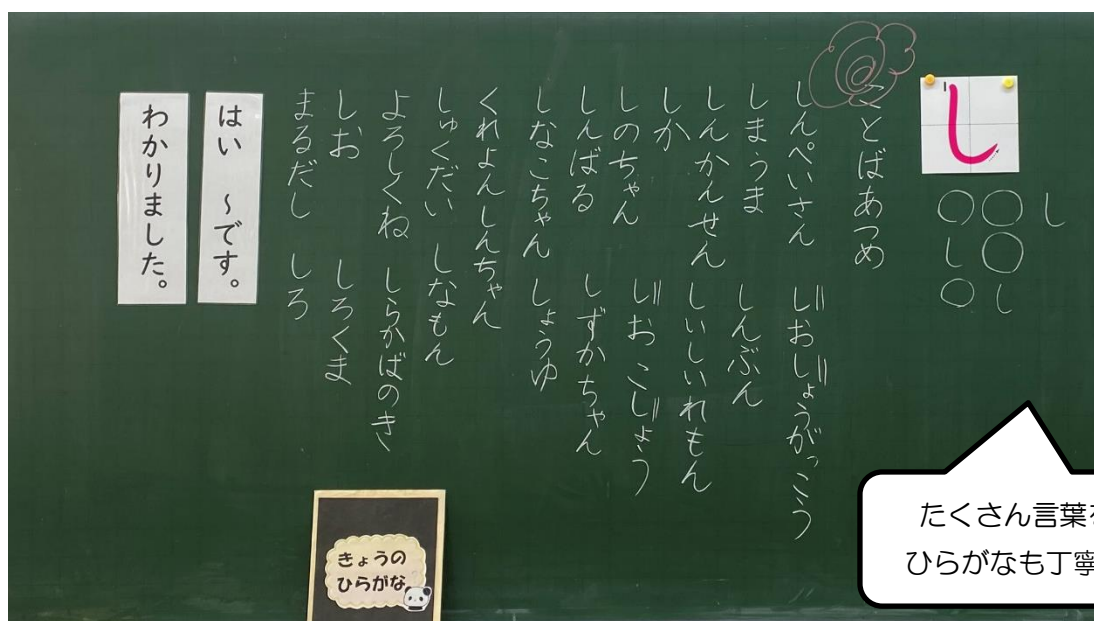 し
し
○○し
○し○
ことばあつめ
しんぺいさん じおしょうがっこう
しまうま しんぶん
しんかんせん しいしいれもん
しか じお こじょう
しのちゃん しずかちゃん
しんばる
しなこちゃん しょうゆ
くれよんしんちゃん
しゅくだい しなもん
よろしくね しらかばのき
しお しろくま
まるだし しろ
はい ~です。
わかりました。
きょうの
ひらがな
たくさん言葉を
ひらがなも丁寧